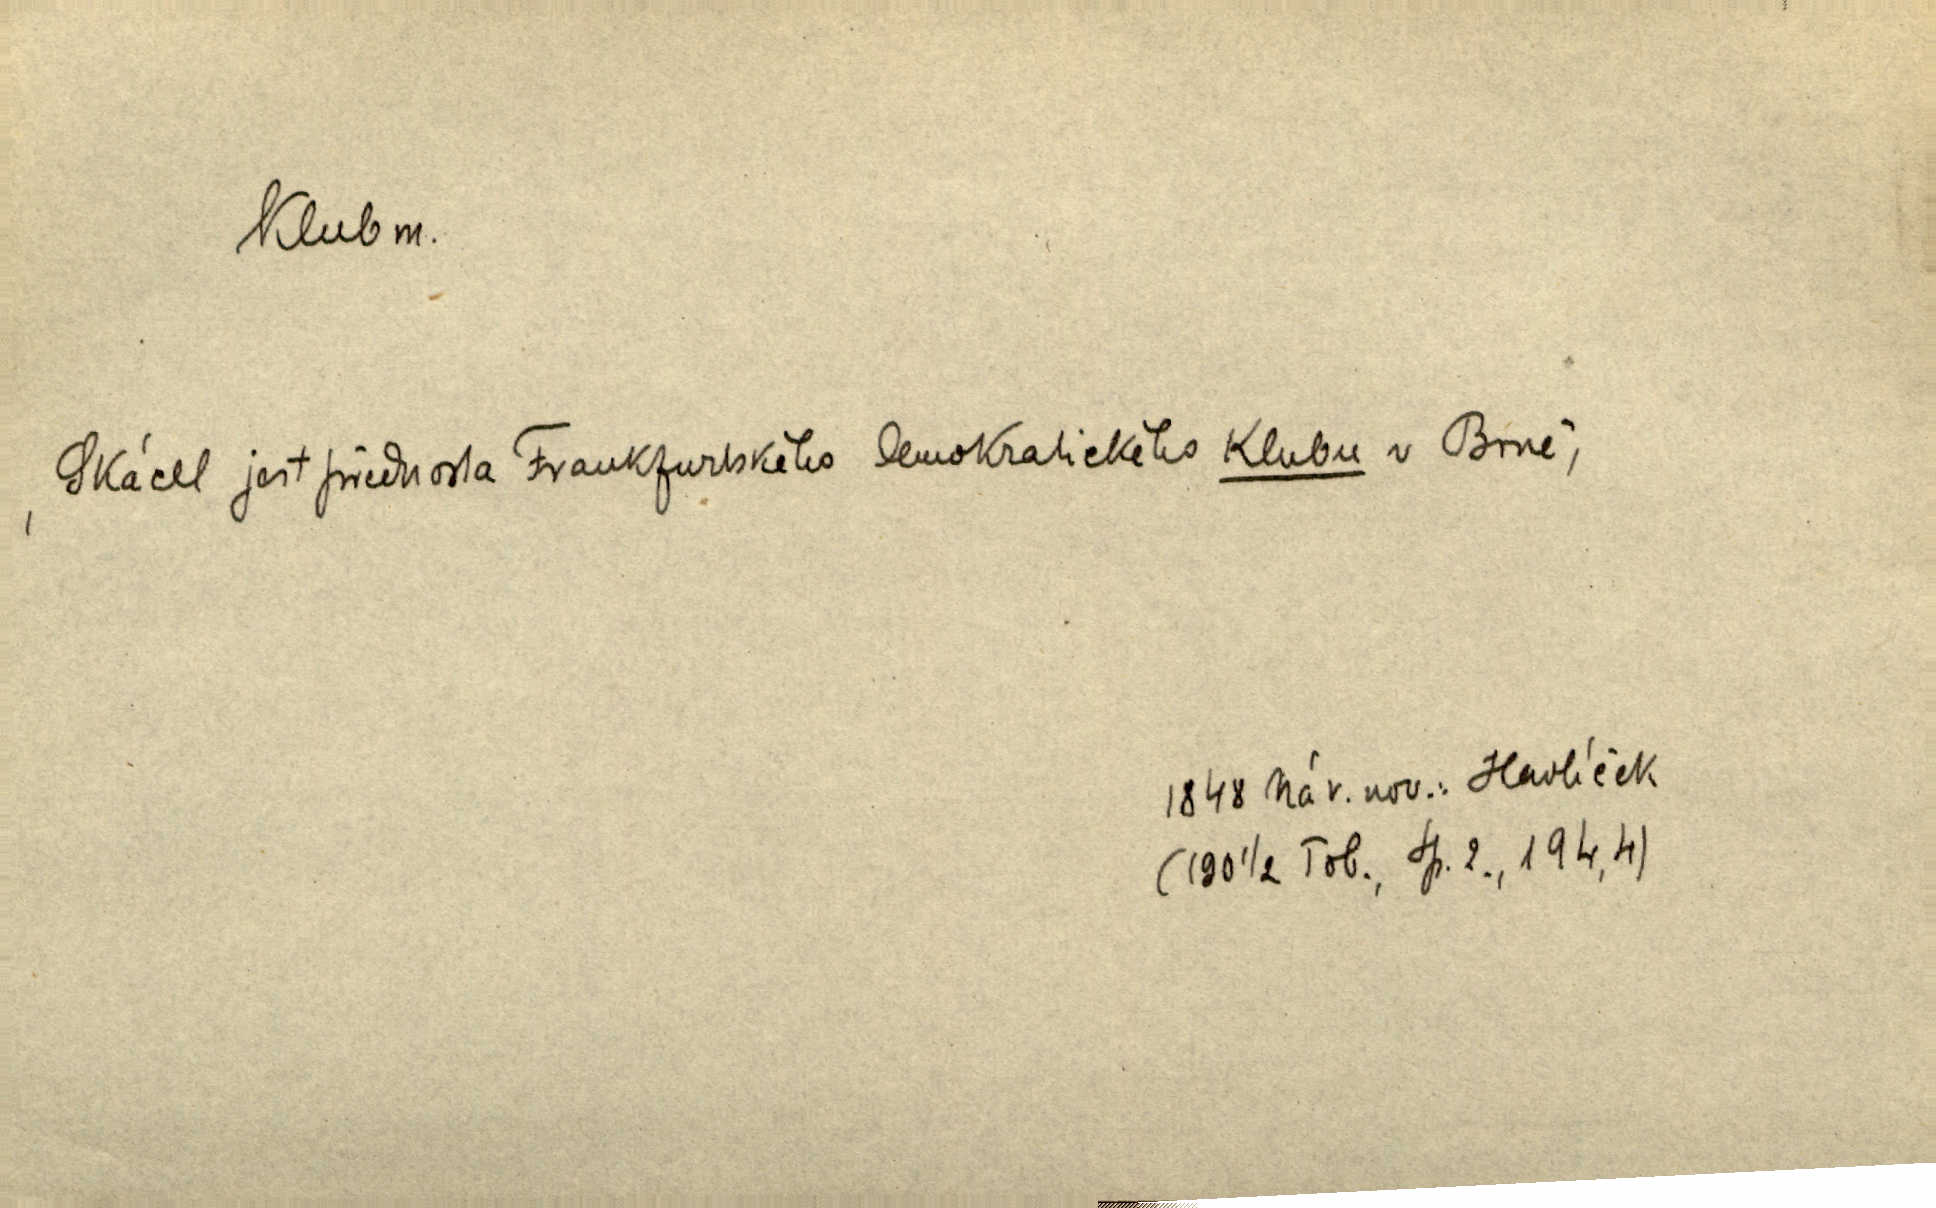 Klub m.
, Skácel jest přednosta Frankfurtského demokratického klubu v Brně,
1848 Nár. nov.: Havlíček
(190 1/2 Tob., Sp. 2., 194,4)